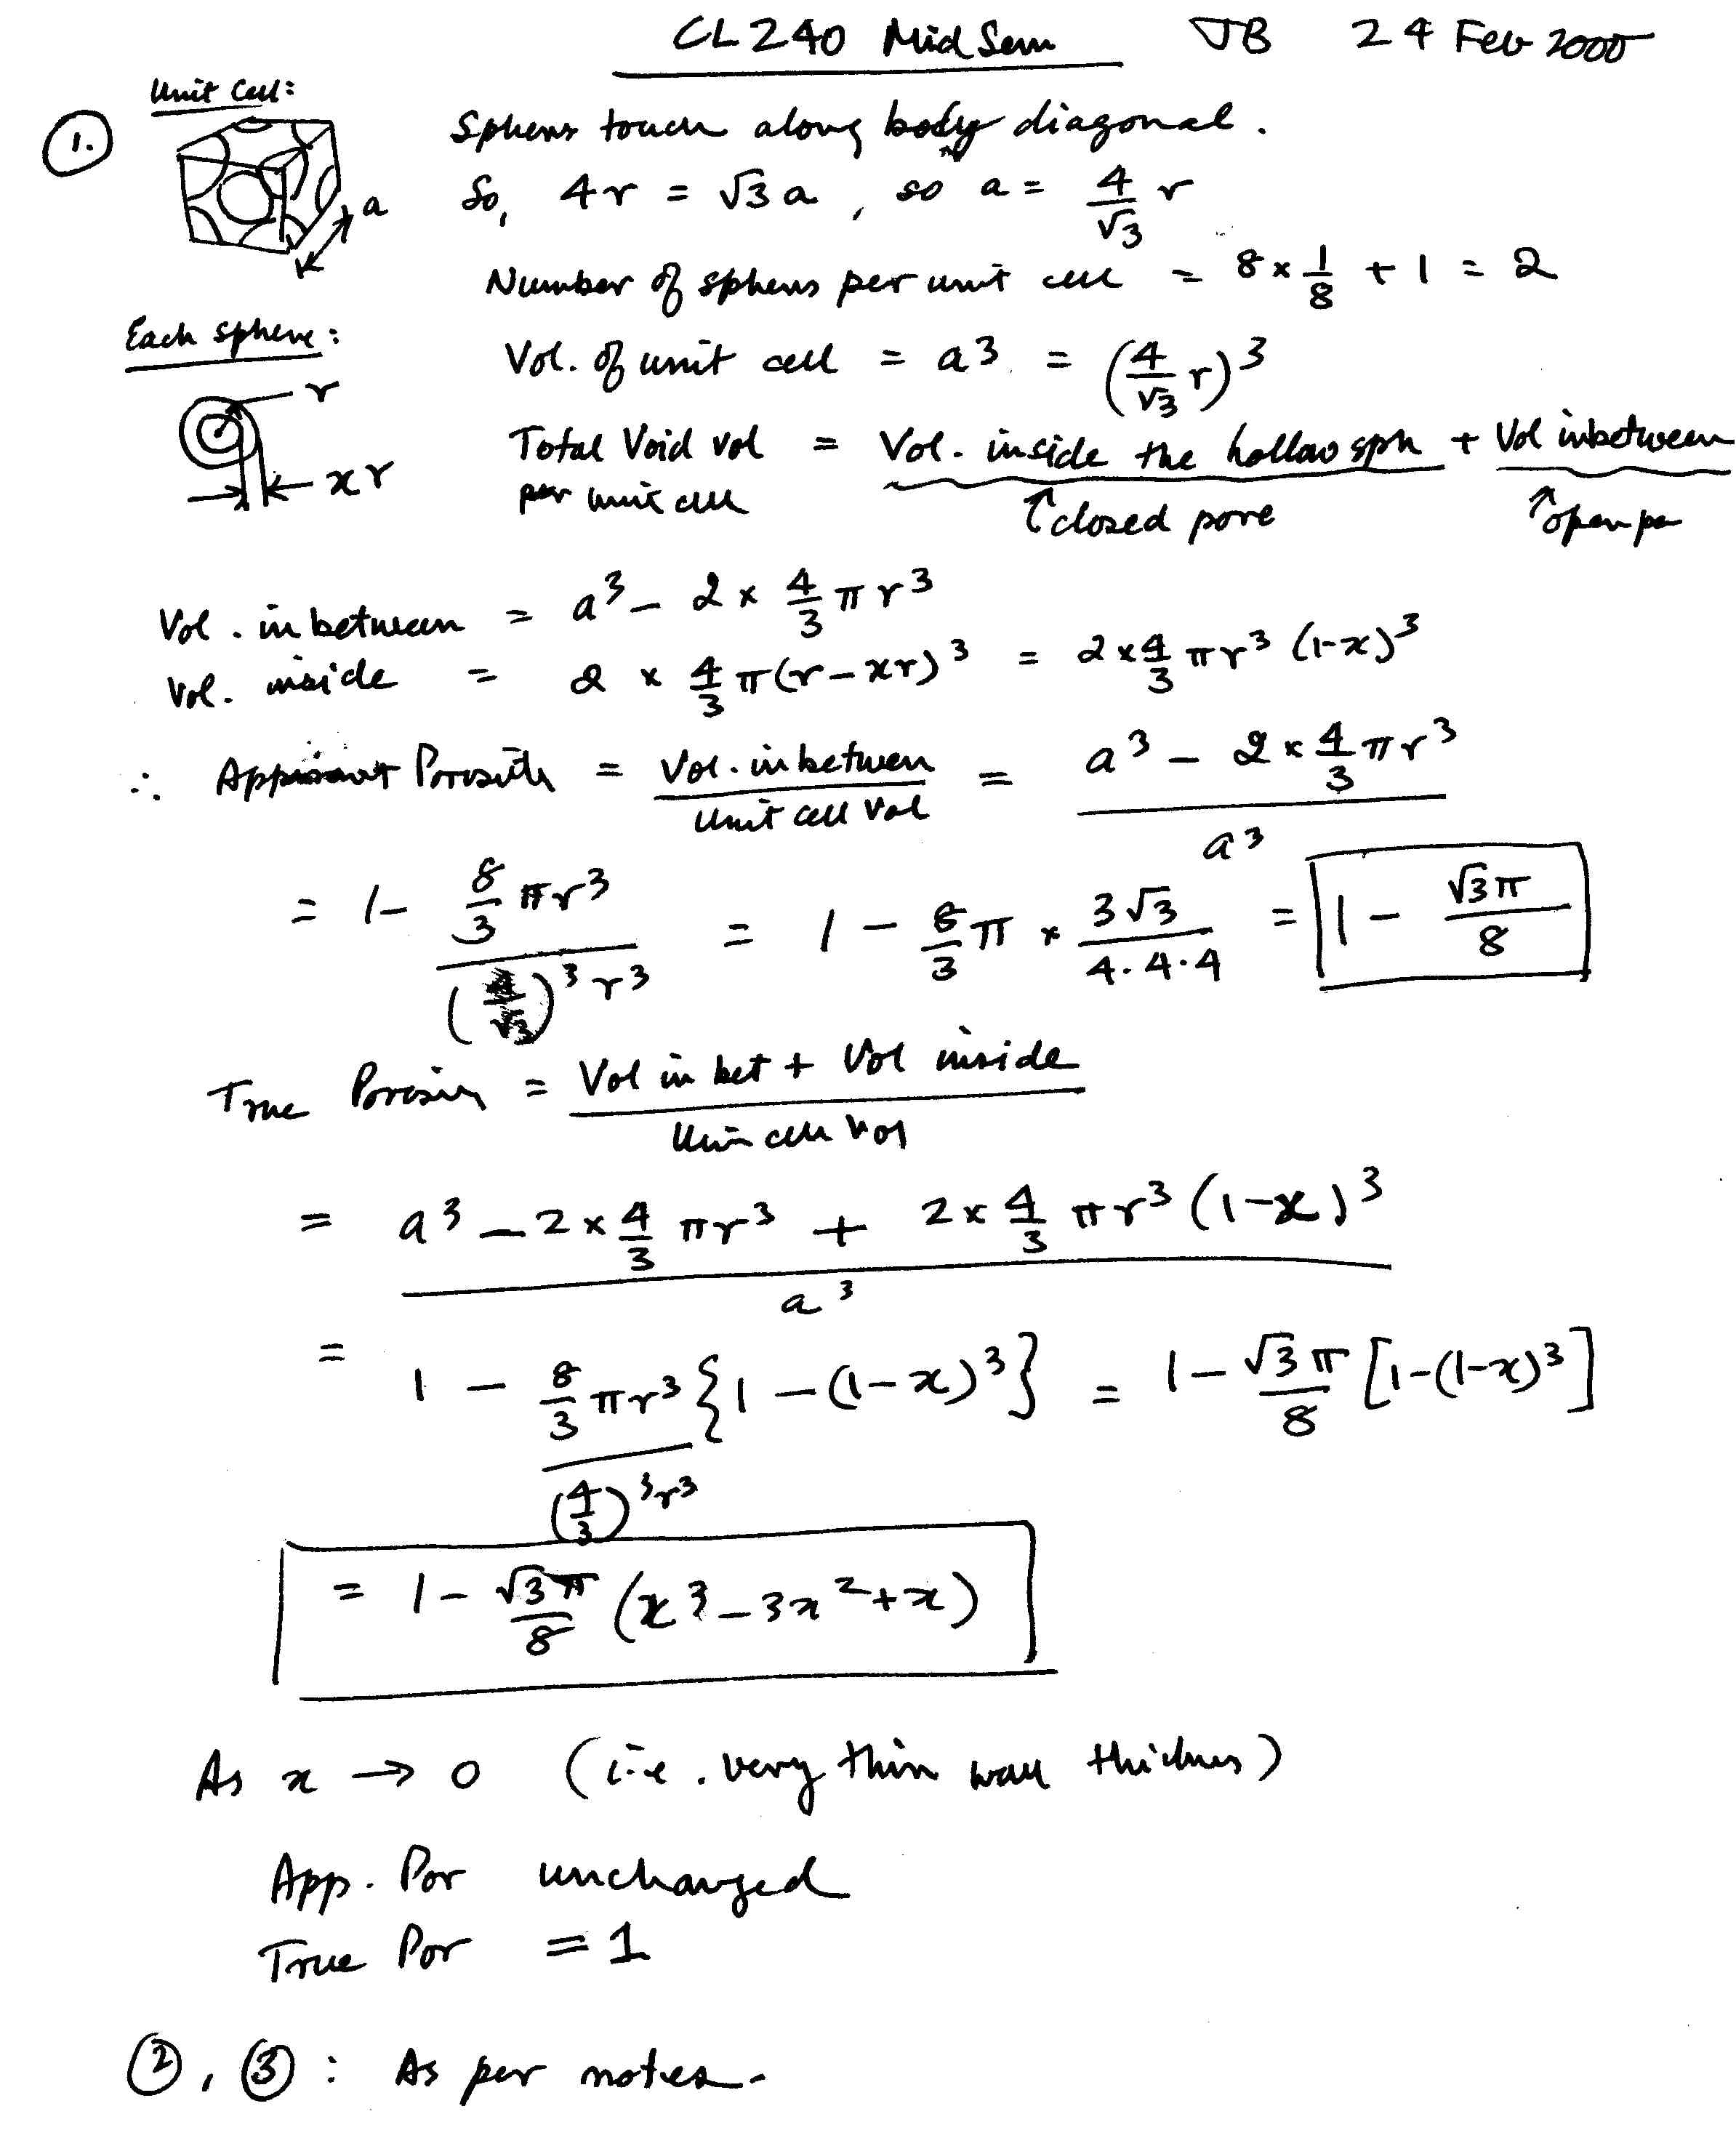 CL240 Mid Sem JB 24 Feb 2000
Unit Cell:
1. Spheres touch along body diagonal.
a
So, 4r = √3 a, so a = 4/√3 r
Number of spheres per unit cell = 8 × 1/8 + 1 = 2
Each sphere:
r
xr
Vol. of unit cell = a³ = (4/√3 r)³
Total Void vol = Vol. inside the hollow sph + Vol inbetween
per unit cell ↑closed pore ↑open po
Vol. in between = a³ – 2 × 4/3 π r³
Vol. inside = 2 × 4/3 π (r – xr)³ = 2 × 4/3 π r³ (1-x)³
∴ Apparent Porosity = Vol. in between / Unit cell Vol = (a³ – 2 × 4/3 π r³) / a³
= 1 – (8/3 π r³) / ((4/√3)³ r³) = 1 – 8/3 π × 3√3 / 4.4.4 = 1 – √3 π / 8
True Porosity = (Vol in bet + Vol inside) / Unit cell Vol
= (a³ – 2 × 4/3 π r³ + 2 × 4/3 π r³ (1-x)³) / a³
= 1 – (8/3 π r³) / ((4/3)³ r³) {1 – (1-x)³} = 1 – √3 π / 8 [1-(1-x)³]
= 1 – √3 π / 8 (x³ – 3x² + x)
As x → 0 (i.e. very thin wall thickness)
App. Por unchanged
True Por = 1
2, 3: As per notes.